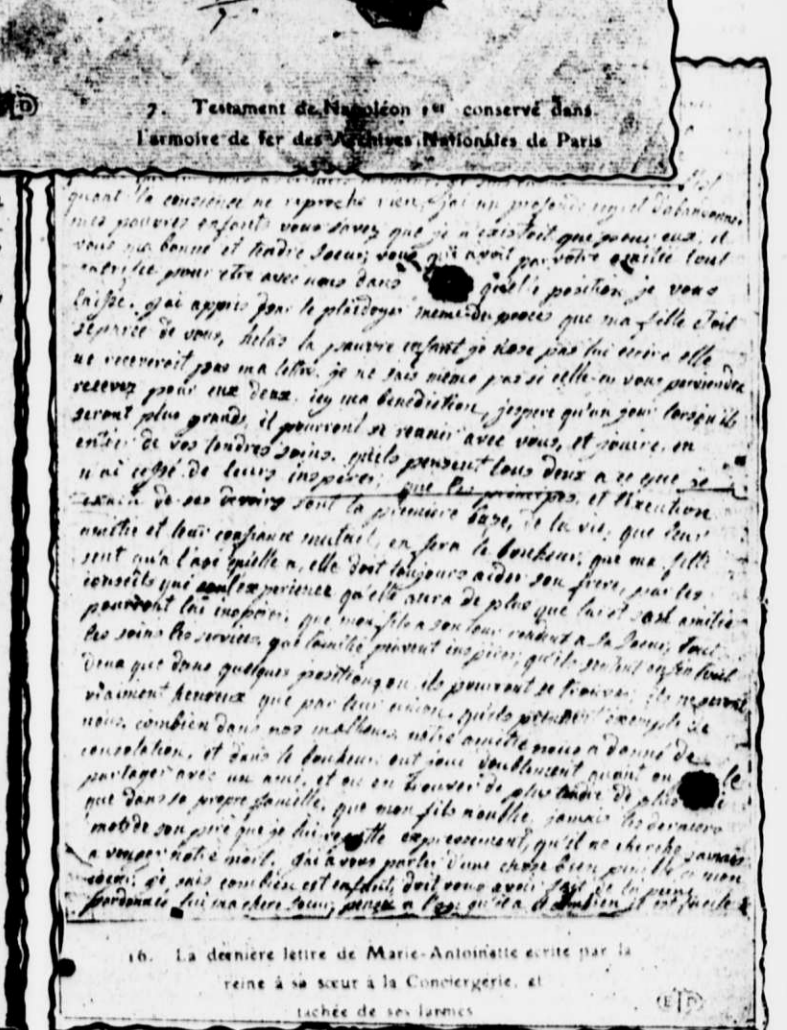 7. Testament de Napoléon 1er conservé dans
l'armoire de fer des Archives Nationales de Paris
quant la conscience ne reproche rien, j'ai un profond regret d'abandonner
mes pauvres enfants vous savez que je n'existoit que pour eux, et
vous ma bonne et tendre soeur, vous qui avoit par votre amitié tout
sacrifié pour etre avec nous dans quelle position je vous
laisse. j'ai appris par le plaidoyer meme du proces que ma fille etoit
separée de vous, helas la pauvre enfant je n'ose pas lui ecrire elle
ne receveroit pas ma lettre, je ne sais meme pas si celle-cy vous parviendra
recevez pour eux deux, icy ma benediction, j'espere qu'un jour lorsqu'ils
seront plus grands, il pourront se reunir avec vous, et jouire, en
entier de vos tendres soins. qu'ils pensent tous deux a ce que je
n'ai cessé de leurs inspirer, que les principes, et l'execution
exacte de ses devoirs sont la première base, de la vie, que leur
amitié et leur confiance mutuel, en fera le bonheur, que ma fille
sent qu'a l'age qu'elle a, elle doit toujours aider son frere, par les
conseils qui l'experience qu'elle aura de plus que lui et son amitié
pourront lui inspirer, que mon fils a son tour rendent a sa soeur, tout
les soins les services, que l'amitié peuvent inspirer, qu'ils sentent enfin tout
deux que dans quelques positions ou ils pourront se trouver, ils ne seront
vraiment heureux que par leur union, qu'ils prennent exemple de
nous, combien dans nos malheurs, notre amitié nous a donné de
consolation, et dans le bonheur ont joui doublement quant on le
partager avec un ami, et ou en trouver de plus tendre de plus
que dans sa propre famille, que mon fils n'oublie, jamais les derniers
mots de son pere que je lui repette expressement, qu'il ne cherche jamais
a venger notre mort. j'ai a vous parler d'une chose bien penible a mon
coeur, je sais combien cet enfant, doit vous avoir fait de la peine
pardonnez lui ma chere soeur, pensez a l'age qu'il a et combien il est facile
16. La dernière lettre de Marie-Antoinette écrite par la
reine à sa sœur à la Conciergerie, et
tachée de ses larmes